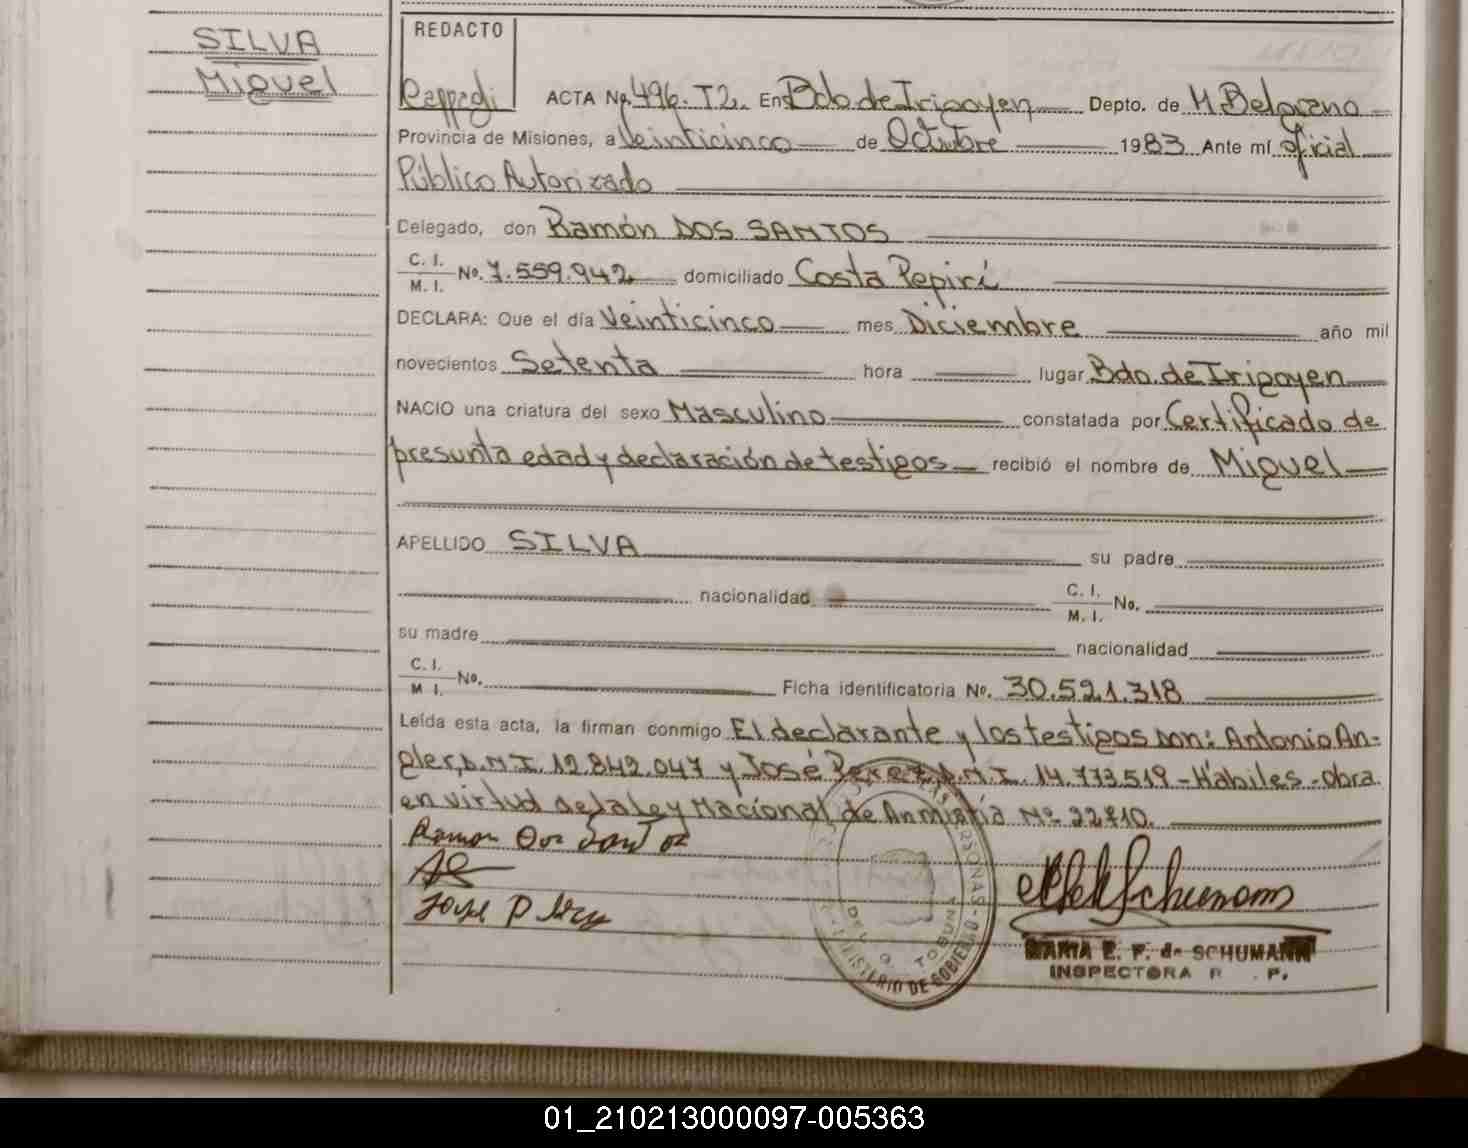 SILVA
Miguel
REDACTO
ACTA No. 496. T2. En Bdo de Irigoyen Depto. de M. Belgrano
Provincia de Misiones, a Veinticinco de Octubre 1983 Ante mí Oficial
Público Autorizado
Delegado, don Ramón DOS SANTOS
C. I.
M. I. No. 7.559.942 domiciliado Costa Pepirí
DECLARA: Que el día Veinticinco mes Diciembre año mil
novecientos Setenta hora lugar Bdo. de Irigoyen
NACIO una criatura del sexo Masculino constatada por Certificado de
presunta edad y declaración de testigos recibió el nombre de Miguel
APELLIDO SILVA su padre
nacionalidad C. I.
M. I. No.
su madre nacionalidad
C. I.
M I. No. Ficha identificatoria No. 30.521.318
Leída esta acta, la firman conmigo El declarante y los testigos son: Antonio An-
gler, D.N.I. 12.842.047 y José Perez, D.N.I. 14.773.519 - Hábiles - Obra
en virtud de la ley Nacional de Amnistía Nº 22
Ramon Dos Santos
MARIA E. P. de SCHUMANN
INSPECTORA R . P.
MINISTERIO DE GOBIERNO
01_210213000097-005363